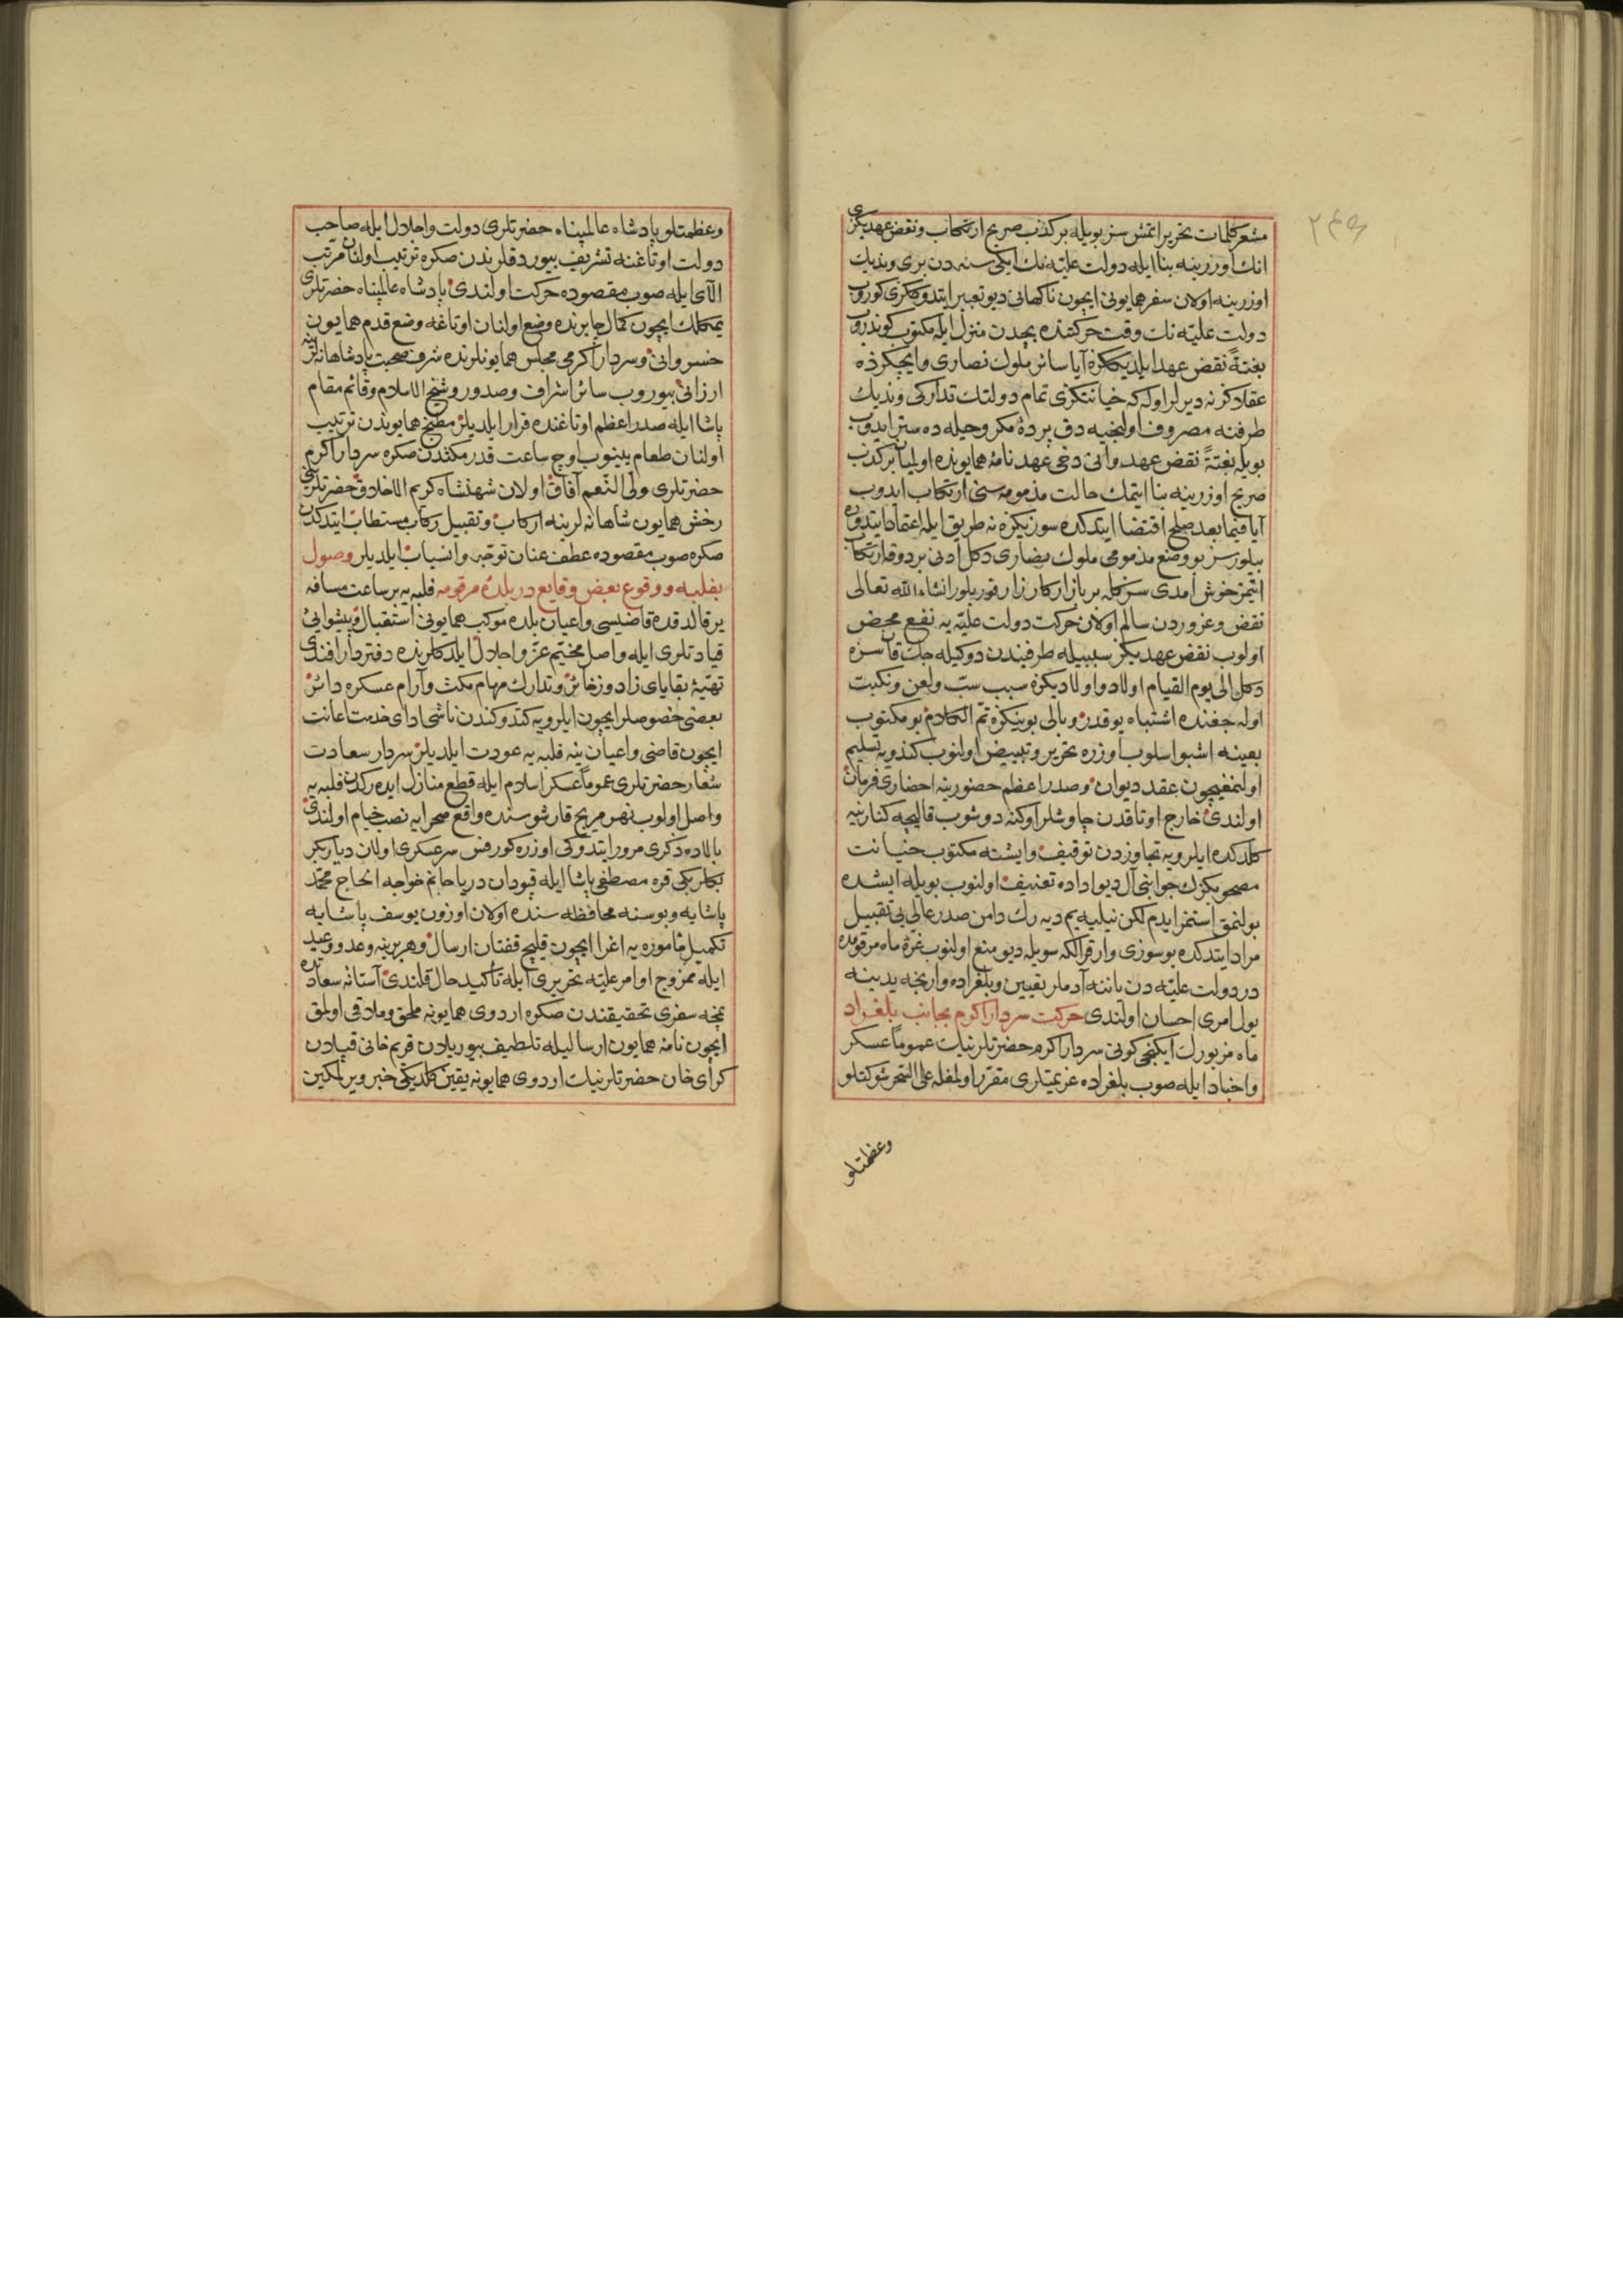 ٢٤٩
مشعر كلمات تحرير اتمش سز بويله بر كذب صريح ارتكاب و نقض عهديكزى
انك اوزرينه بنا ايله دولت عليّه نك ايكى سنه دن برى وندیك
اوزرينه اولان سفر همايونى ايچون ناكهانى ديو تعبير ايتدوككزى كوروب
دولت عليّه نك وقت حركتنده بچدن منزل ايله مكتوب كوندروب
بغتةً نقض عهد ايلديككزه آيا سائر ملوك نصارى و ايچكزده
عقلاكز نه ديرلر اوله كه خيانتكزى تمام دولتك تداركى وندیك
طرفنه مصروف اولنجيه دق پردهٔ مكر و حيله ده ستر ايدوب
بويله بغتةً نقض عهد و انى دخى عهدنامهٔ همايونده اوليان بر كذب
صريح اوزرينه بنا ايتمك حالت مذمومه سنى ارتكاب ايدوب
آيا فيما بعد صلح اقتضا ايتدكده سوزيكزه نه طريق ايله اعتماد ايتدوره
بيلورسز بو وضع مذمومى ملوك نصارى دكل ادنى بر دوقه ارتكاب
ايتمز خوش امدى سزكله بر بازار كارزار قوريلور انشاء الله تعالى
نقض و غروردن سالم اولان حركت دولت عليّه يه نفع محض
اولوب نقض عهديكز سببيله طرفيندن دوكيله جك قان سزه
دكل الى يوم القيام اولاد و اولاديكزه سبب سبّ و لعن و نكبت
اوله جغنده اشتباه يوقدر و بالى بوينكزه تمّ الكلام بو مكتوب
بعينه اشبو اسلوب اوزره تحرير و تبييض اولنوب كندويه تسليم
اولنمغيچون عقد ديوان و صدر اعظم حضورينه احضارى فرمان
اولندى خارج اوتاقدن چاوشلر اوكنه دوشوب قاليچه كنارينه
كلدكده ايلرويه تجاوزدن توقيف و ايشته مكتوب خيانت
مصحوبكزك جوابنى آل ديو اداده تعنيف اولنوب بويله ايشده
بولنمق استمز ايدم لكن نيليه يم ديه رك دامن صدر عالى يى تقبيل
مراد ايتدكده بو سوزى وار قرالكه سويله ديو منع اولنوب غرّهٔ ماه مرقومده
در دولت عليّه دن ياننه آدملر تعيين و بلغراده وارنجه يدينه
يول امرى احسان اولندى حركت سردار اكرم بجانب بلغراد
ماه مزبورك ايكنجى كونى سردار اكرم حضرتلرينك عموماً عسكر
و اجناد ايله صوب بلغراده عزيمتلرى مقرّر اولمغله على السّحر شوكتلو
وعظمتلو
وعظمتلو پادشاه عالمپناه حضرتلرى دولت و اجلال ايله صاحب
دولت اوتاغنه تشريف بيوردقلرندن صكره ترتيب اولنان مرتّب
آلاى ايله صوب مقصوده حركت اولندى پادشاه عالمپناه حضرتلرى
يمكلك ايچون كمال جايرنده وضع اولنان اوتاغه وضع قدم همايون
خسروانى و سردار اكرمى مجلس همايونلرنده شرف صحبت پادشاهانه لرينه
ارزانى بيوروب سائر اشراف و صدور و شيخ الاسلام و قائم مقام
پاشا ايله صدر اعظم اوتاغنده قرار ايلديلر مطبخ همايوندن ترتيب
اولنان طعام يينوب اوچ ساعت قدر مكثدن صكره سردار اكرم
حضرتلرى ولى النّعم آفاق اولان شهنشاه كريم الاخلاق حضرتلرى
رخش همايون شاهانه لرينه اركاب و تقبيل ركاب مستطاب ايتدكدن
صكره صوب مقصوده عطف عنان توجّه و انسياب ايلديلر وصول
بفلبه و وقوع بعض وقايع در بلدهٔ مرقومه فلبه يه بر ساعت مسافه
ير قالدقده قاضيسى و اعيان بلده موكب همايونى استقبال و پيشوايئ
قيادتلرى ايله واصل مخيّم عزّ و اجلال ايلدكلرنده دفتردار افندى
تهيّهٔ بقاياى زاد و زخائر و تدارك مهام مكث و آرام عسكره دائر
بعضى خصوصلر ايچون ايلرويه كندوكندن ناشى اداى خدمت اعانت
ايچون قاضى و اعيان ينه فلبه يه عودت ايلديلر سردار سعادت
شعار حضرتلرى عموماً عسكر اسلام ايله قطع منازل ايده رك فلبه يه
واصل اولوب نهر مريج قارشوسنده واقع صحرايه نصب خيام اولندى
بالاده ذكرى مرور ايتدوكى اوزره كورفس سرعسكرى اولان ديار بكر
بكلربكى قره مصطفى پاشا ايله قپودان دريا جانم خواجه الحاج محمّد
پاشايه و بوسنه محافظه سنده اولان اوزون يوسف پاشايه
تكميل مأموره يه اغرا ايچون قليج قفتان ارسال و هر برينه وعد و وعيد
ايله ممزوج اوامر عليّه تحريرى ايله تأكيد حال قلندى آستانهٔ سعادتده
نمچه سفرى تحقيقندن صكره اردوى همايونه ملحق و ملاقى اولمق
ايچون نامهٔ همايون ارساليله تلطيف بيوريلان قريم خانى قپلان
كراى خان حضرتلرينك اردوى همايونه يقين كلديكى خبر ويرلمكين